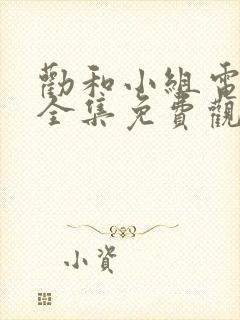 勸和小組電
全集免費觀
小資